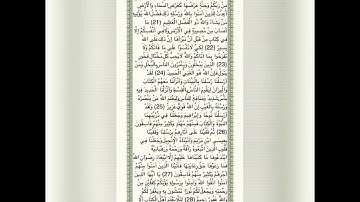 مِنْ رَبِّكُمْ وَجَنَّةٍ عَرْضُهَا كَعَرْضِ السَّمَاءِ وَالْأَرْضِ
أُعِدَّتْ لِلَّذِينَ آمَنُوا بِاللَّهِ وَرُسُلِهِ ذَلِكَ فَضْلُ اللَّهِ يُؤْتِيهِ
مَنْ يَشَاءُ وَاللَّهُ ذُو الْفَضْلِ الْعَظِيمِ (21) مَا
أَصَابَ مِنْ مُصِيبَةٍ فِي الْأَرْضِ وَلَا فِي أَنْفُسِكُمْ إِلَّا
فِي كِتَابٍ مِنْ قَبْلِ أَنْ نَبْرَأَهَا إِنَّ ذَلِكَ عَلَى اللَّهِ
يَسِيرٌ (22) لِكَيْلَا تَأْسَوْا عَلَى مَا فَاتَكُمْ وَلَا
تَفْرَحُوا بِمَا آتَاكُمْ وَاللَّهُ لَا يُحِبُّ كُلَّ مُخْتَالٍ فَخُورٍ
(23) الَّذِينَ يَبْخَلُونَ وَيَأْمُرُونَ النَّاسَ بِالْبُخْلِ وَمَنْ
يَتَوَلَّ فَإِنَّ اللَّهَ هُوَ الْغَنِيُّ الْحَمِيدُ (24) لَقَدْ
أَرْسَلْنَا رُسُلَنَا بِالْبَيِّنَاتِ وَأَنْزَلْنَا مَعَهُمُ الْكِتَابَ
وَالْمِيزَانَ لِيَقُومَ النَّاسُ بِالْقِسْطِ وَأَنْزَلْنَا الْحَدِيدَ فِيهِ
بَأْسٌ شَدِيدٌ وَمَنَافِعُ لِلنَّاسِ وَلِيَعْلَمَ اللَّهُ مَنْ يَنْصُرُهُ
وَرُسُلَهُ بِالْغَيْبِ إِنَّ اللَّهَ قَوِيٌّ عَزِيزٌ (25) وَلَقَدْ
أَرْسَلْنَا نُوحًا وَإِبْرَاهِيمَ وَجَعَلْنَا فِي ذُرِّيَّتِهِمَا
النُّبُوَّةَ وَالْكِتَابَ فَمِنْهُمْ مُهْتَدٍ وَكَثِيرٌ مِنْهُمْ فَاسِقُونَ
(26) ثُمَّ قَفَّيْنَا عَلَى آثَارِهِمْ بِرُسُلِنَا وَقَفَّيْنَا
بِعِيسَى ابْنِ مَرْيَمَ وَآتَيْنَاهُ الْإِنْجِيلَ وَجَعَلْنَا فِي
قُلُوبِ الَّذِينَ اتَّبَعُوهُ رَأْفَةً وَرَحْمَةً وَرَهْبَانِيَّةً
ابْتَدَعُوهَا مَا كَتَبْنَاهَا عَلَيْهِمْ إِلَّا ابْتِغَاءَ رِضْوَانِ اللَّهِ
فَمَا رَعَوْهَا حَقَّ رِعَايَتِهَا فَآتَيْنَا الَّذِينَ آمَنُوا مِنْهُمْ
أَجْرَهُمْ وَكَثِيرٌ مِنْهُمْ فَاسِقُونَ (27) يَا أَيُّهَا الَّذِينَ
آمَنُوا اتَّقُوا اللَّهَ وَآمِنُوا بِرَسُولِهِ يُؤْتِكُمْ كِفْلَيْنِ مِنْ
رَحْمَتِهِ وَيَجْعَلْ لَكُمْ نُورًا تَمْشُونَ بِهِ وَيَغْفِرْ لَكُمْ
وَاللَّهُ غَفُورٌ رَحِيمٌ (28) لِئَلَّا يَعْلَمَ أَهْلُ الْكِتَابِ أَلَّا